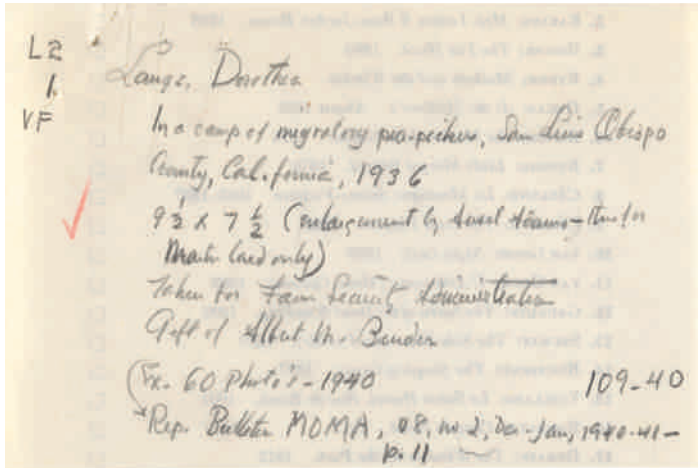 L2
1.
VF
Lange, Dorothea
In a camp of migratory pea-pickers, San Luis Obispo
County, California, 1936
9 1/2 x 7 1/2 (enlargement by Ansel Adams - this for
Master Card only)
Taken for Farm Security Administration
Gift of Albert M. Bender
(Ex. 60 Photo's - 1940
109-40
*Rep. Bulletin MOMA, v8, no 2, Dec-Jan, 1940-41 -
p. 11